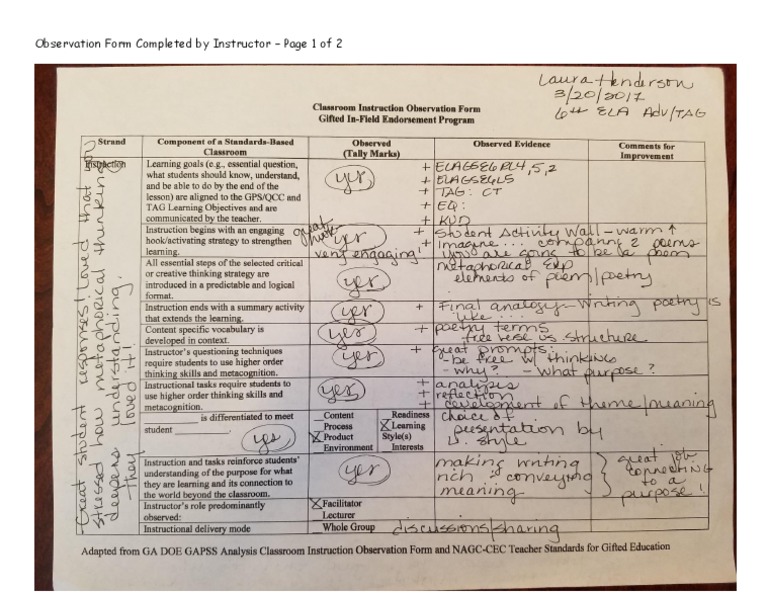 Observation Form Completed by Instructor – Page 1 of 2
Laura Henderson
3/20/2017
6th ELA Adv/TAG
Classroom Instruction Observation Form
Gifted In-Field Endorsement Program
Strand
Component of a Standards-Based
Classroom
Observed
(Tally Marks)
Observed Evidence
Comments for
Improvement
Instruction
Learning goals (e.g., essential question,
what students should know, understand,
and be able to do by the end of the
lesson) are aligned to the GPS/QCC and
TAG Learning Objectives and are
communicated by the teacher.
yes
+ ELAGSE6RL4,5,2
+ ELAGSE6L5
+ TAG: CT
+ EQ:
+ KUD
Instruction begins with an engaging
hook/activating strategy to strengthen
learning.
great
hook
yes
very engaging!
+ Student Activity Wall - warm ↑
+ Imagine... comparing 2 poems
you are going to be a poem
All essential steps of the selected critical
or creative thinking strategy are
introduced in a predictable and logical
format.
yes
metaphorical Exp
elements of poem/poetry
Instruction ends with a summary activity
that extends the learning.
yes
+ Final analogy - Writing poetry is
like...
Content specific vocabulary is
developed in context.
yes
+ poetry terms
free verse vs structure
Instructor's questioning techniques
require students to use higher order
thinking skills and metacognition.
yes
+ Great prompts:
- be free w/ thinking
- why? - What purpose?
Instructional tasks require students to
use higher order thinking skills and
metacognition.
yes
+ analysis
+ reflection
+ development of theme/meaning
is differentiated to meet
student
yes
Content
Process
X Product
Environment
Readiness
X Learning
Style(s)
Interests
choice of
presentation by
L. style
Instruction and tasks reinforce students'
understanding of the purpose for what
they are learning and its connection to
the world beyond the classroom.
yes
making writing
rich & conveying
meaning
great job
connecting
to a
purpose!
Instructor's role predominantly
observed:
X Facilitator
Lecturer
Instructional delivery mode
Whole Group
discussions/sharing
Great student responses! Loved that
stressed how metaphorical thinking
deepens understanding.
- They loved it!
Adapted from GA DOE GAPSS Analysis Classroom Instruction Observation Form and NAGC-CEC Teacher Standards for Gifted Education